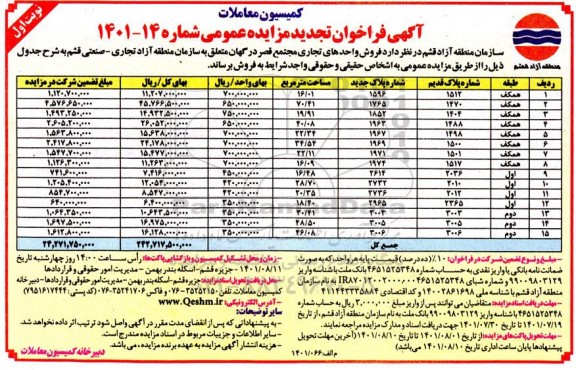 نوبت اول
کمیسیون معاملات
آگهی فراخوان تجدید مزایده عمومی شماره ۱۴-۱۴۰۱
منطقه آزاد قشم
سازمان منطقه آزاد قشم در نظر دارد فروش واحدهای تجاری مجتمع قصر درگهان متعلق به سازمان منطقه آزاد تجاری - صنعتی قشم به شرح جدول
ذیل را از طریق مزایده عمومی به اشخاص حقیقی و حقوقی واجد شرایط به فروش برساند.
ردیف طبقه شماره پلاک قدیم شماره پلاک جدید مساحت مترمربع بهای واحد/ریال بهای کل/ریال مبلغ تضمین شرکت در مزایده
۱ همکف ۱۵۱۲ ۱۵۹۶ ۱۶/۰۱ ۷۰۰,۰۰۰,۰۰۰ ۱۱,۲۰۷,۰۰۰,۰۰۰ ۱,۱۲۰,۷۰۰,۰۰۰
۲ همکف ۱۴۷۰ ۱۷۶۵ ۷۰/۴۱ ۶۵۰,۰۰۰,۰۰۰ ۴۵,۷۶۶,۵۰۰,۰۰۰ ۴,۵۷۶,۶۵۰,۰۰۰
۳ همکف ۱۴۰۴ ۱۸۵۲ ۱۹/۹۱ ۷۵۰,۰۰۰,۰۰۰ ۱۴,۹۳۲,۵۰۰,۰۰۰ ۱,۴۹۳,۲۵۰,۰۰۰
۴ همکف ۱۴۸۸ ۱۹۶۳ ۴۰/۰۸ ۶۵۰,۰۰۰,۰۰۰ ۲۶,۰۵۲,۰۰۰,۰۰۰ ۲,۶۰۵,۲۰۰,۰۰۰
۵ همکف ۱۴۹۸ ۱۹۶۷ ۲۲/۳۴ ۷۰۰,۰۰۰,۰۰۰ ۱۵,۶۳۸,۰۰۰,۰۰۰ ۱,۵۶۳,۸۰۰,۰۰۰
۶ همکف ۱۵۰۰ ۱۹۶۹ ۳۴/۵۴ ۷۰۰,۰۰۰,۰۰۰ ۲۴,۱۷۸,۰۰۰,۰۰۰ ۲,۴۱۷,۸۰۰,۰۰۰
۷ همکف ۱۵۰۱ ۱۹۷۱ ۲۲/۱۱ ۷۰۰,۰۰۰,۰۰۰ ۱۵,۴۷۷,۰۰۰,۰۰۰ ۱,۵۴۷,۷۰۰,۰۰۰
۸ همکف ۱۵۱۷ ۱۹۷۴ ۱۶/۰۹ ۷۰۰,۰۰۰,۰۰۰ ۱۱,۲۶۳,۰۰۰,۰۰۰ ۱,۱۲۶,۳۰۰,۰۰۰
۹ اول ۲۰۳۶ ۲۶۱۴ ۱۶/۴۸ ۴۵۰,۰۰۰,۰۰۰ ۷,۴۱۶,۰۰۰,۰۰۰ ۷۴۱,۶۰۰,۰۰۰
۱۰ اول ۲۰۱۰ ۲۷۳۲ ۲۸/۷۰ ۴۲۰,۰۰۰,۰۰۰ ۱۲,۰۵۴,۰۰۰,۰۰۰ ۱,۲۰۵,۴۰۰,۰۰۰
۱۱ اول ۲۰۱۲ ۲۷۳۶ ۲۰/۳۵ ۴۲۰,۰۰۰,۰۰۰ ۸,۵۴۷,۰۰۰,۰۰۰ ۸۵۴,۷۰۰,۰۰۰
۱۲ اول ۲۳۶۵ ۲۹۶۵ ۱۸/۴۰ ۶,۴۰۰,۰۰۰,۰۰۰ ۶۴۰,۰۰۰,۰۰۰
۱۳ دوم ۳۰۰۳ ۳۰۰۳ ۳۰/۴۱ ۳۵۰,۰۰۰,۰۰۰ ۱۰,۶۴۳,۵۰۰,۰۰۰ ۱,۰۶۴,۳۵۰,۰۰۰
۱۴ دوم ۳۰۰۵ ۳۰۰۵ ۴۸/۵۰ ۳۵۰,۰۰۰,۰۰۰ ۱۶,۹۷۵,۰۰۰,۰۰۰ ۱,۶۹۷,۵۰۰,۰۰۰
۱۵ دوم ۳۰۰۶ ۳۰۰۶ ۴۶/۰۸ ۳۵۰,۰۰۰,۰۰۰ ۱۶,۱۲۸,۰۰۰,۰۰۰ ۱,۶۱۲,۸۰۰,۰۰۰
جمع کل ۲۴۲,۷۱۷,۵۰۰,۰۰۰ ۲۴,۲۷۱,۷۵۰,۰۰۰
-مبلغ و نوع تضمین شرکت در فراخوان: ۱۰٪ (ده درصد) قیمت پایه هر واحد، که به صورت
ضمانت نامه بانکی یا واریز نقدی به حساب شماره ۴۶۵۱۵۲۵۳۴۸ بانک ملت با شناسه واریز
-مهلت دریافت اسناد مزایده: متقاضیان می توانند پس از واریز مبلغ ۳,۰۰۰,۰۰۰ ریال به حساب شماره
۴۶۵۱۵۲۵۳۴۸ با شناسه واریز ۹۹۰۰۹۸۰۳۱۲۹ بانک ملت به نام سازمان منطقه آزاد قشم، از تاریخ
۱۴۰۱/۰۷/۱۹ تا تاریخ ۱۴۰۱/۰۷/۳۰ جهت دریافت اسناد و مدارک مزایده مراجعه نمایند.
-مهلت تحویل پاکت های مزایده: از تاریخ ۱۴۰۱/۰۸/۰۱ تا تاریخ ۱۴۰۱/۰۸/۱۰ (آخرین مهلت تحویل
پیشنهادها پایان ساعت اداری تاریخ ۱۴۰۱/۰۸/۱۰ می باشد)
-زمان و محل تشکیل کمیسیون و بازگشایی پاکت ها: رأس ساعت ۱۴:۰۰ روز چهارشنبه تاریخ
۱۴۰۱/۰۸/۱۱ - جزیره قشم - اسکله بندر بهمن - مدیریت امور حقوقی و قراردادها
-آدرس الکترونیکی: www.Qeshm.ir
سایر توضیحات:
-به پیشنهاداتی که پس از انقضای مدت مقرر در آگهی واصل شود ترتیب اثر داده نخواهد شد.
-سایر اطلاعات و جزییات مربوط در اسناد مزایده مندرج است.
-هزینه انتشار آگهی مزایده به عهده برنده مزایده، می باشد.
دبیرخانه کمیسیون معاملات
م الف: ۱۴۰۱/۰۶۶